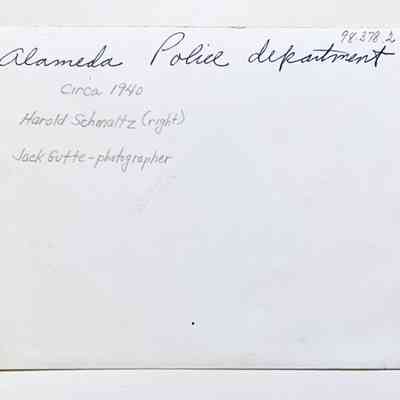 98.378.2
Alameda Police department
Circa 1940
Harold Schmaltz (right)
Jack Gutte - photographer